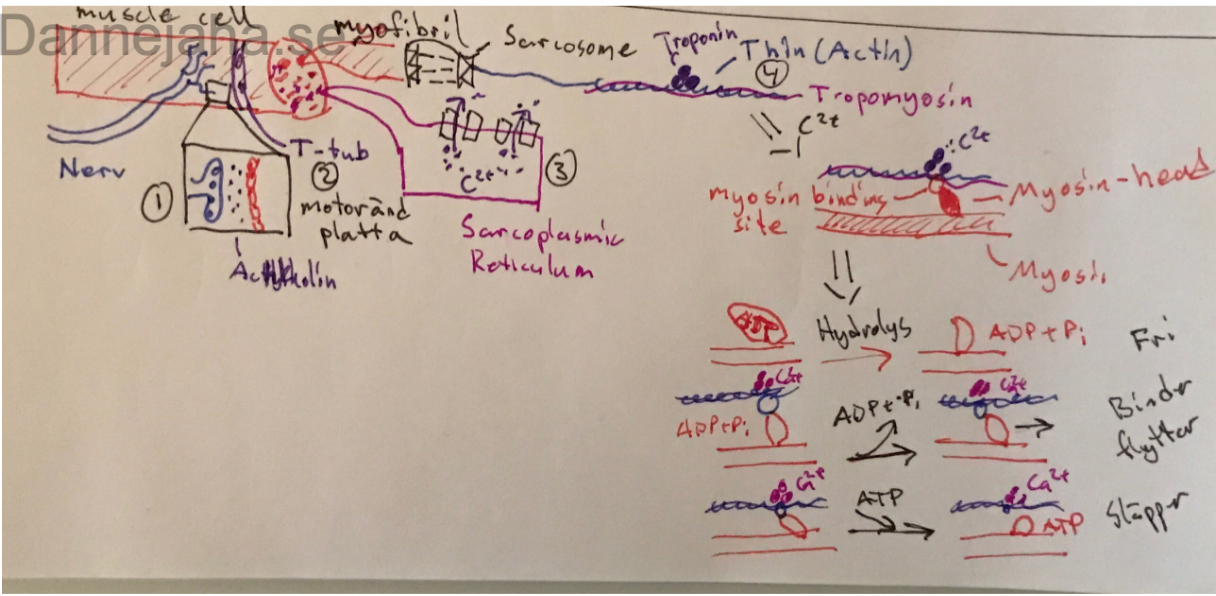 muscle cell
Dannejaha.se
myofibril
Sarcosome
Troponin
Thin (Actin)
④
Tropomyosin
C²⁺
Nerv
①
T-tub
②
motoränd
platta
C²⁺
③
Sarcoplasmic
Reticulum
C²⁺
myosin binding
site
Myosin-head
Hydrolys
ADP+Pi
Fri
Ca²⁺
ADP+Pi
ADP+Pi
Ca²⁺
Binder
flyttar
Ca²⁺
ATP
Ca²⁺
ATP
Släpper